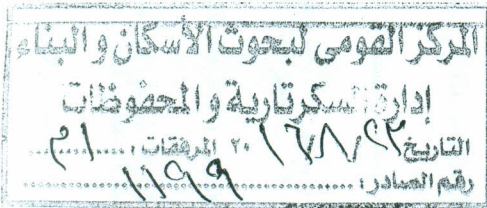 المركز القومى لبحوث الأسكان والبناء
إدارة السكرتارية والمحفوظات
التاريخ ٢٣ / ٨ / ١٦ ٢٠ المرفقات :
رقم الصادر : ١١٩٩